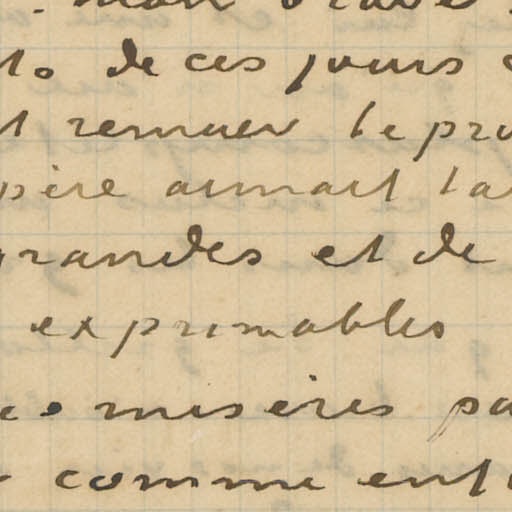 de ces jours
remuer le pro
père aimait la
grandes et de
exprimables
misères pa
comme ent